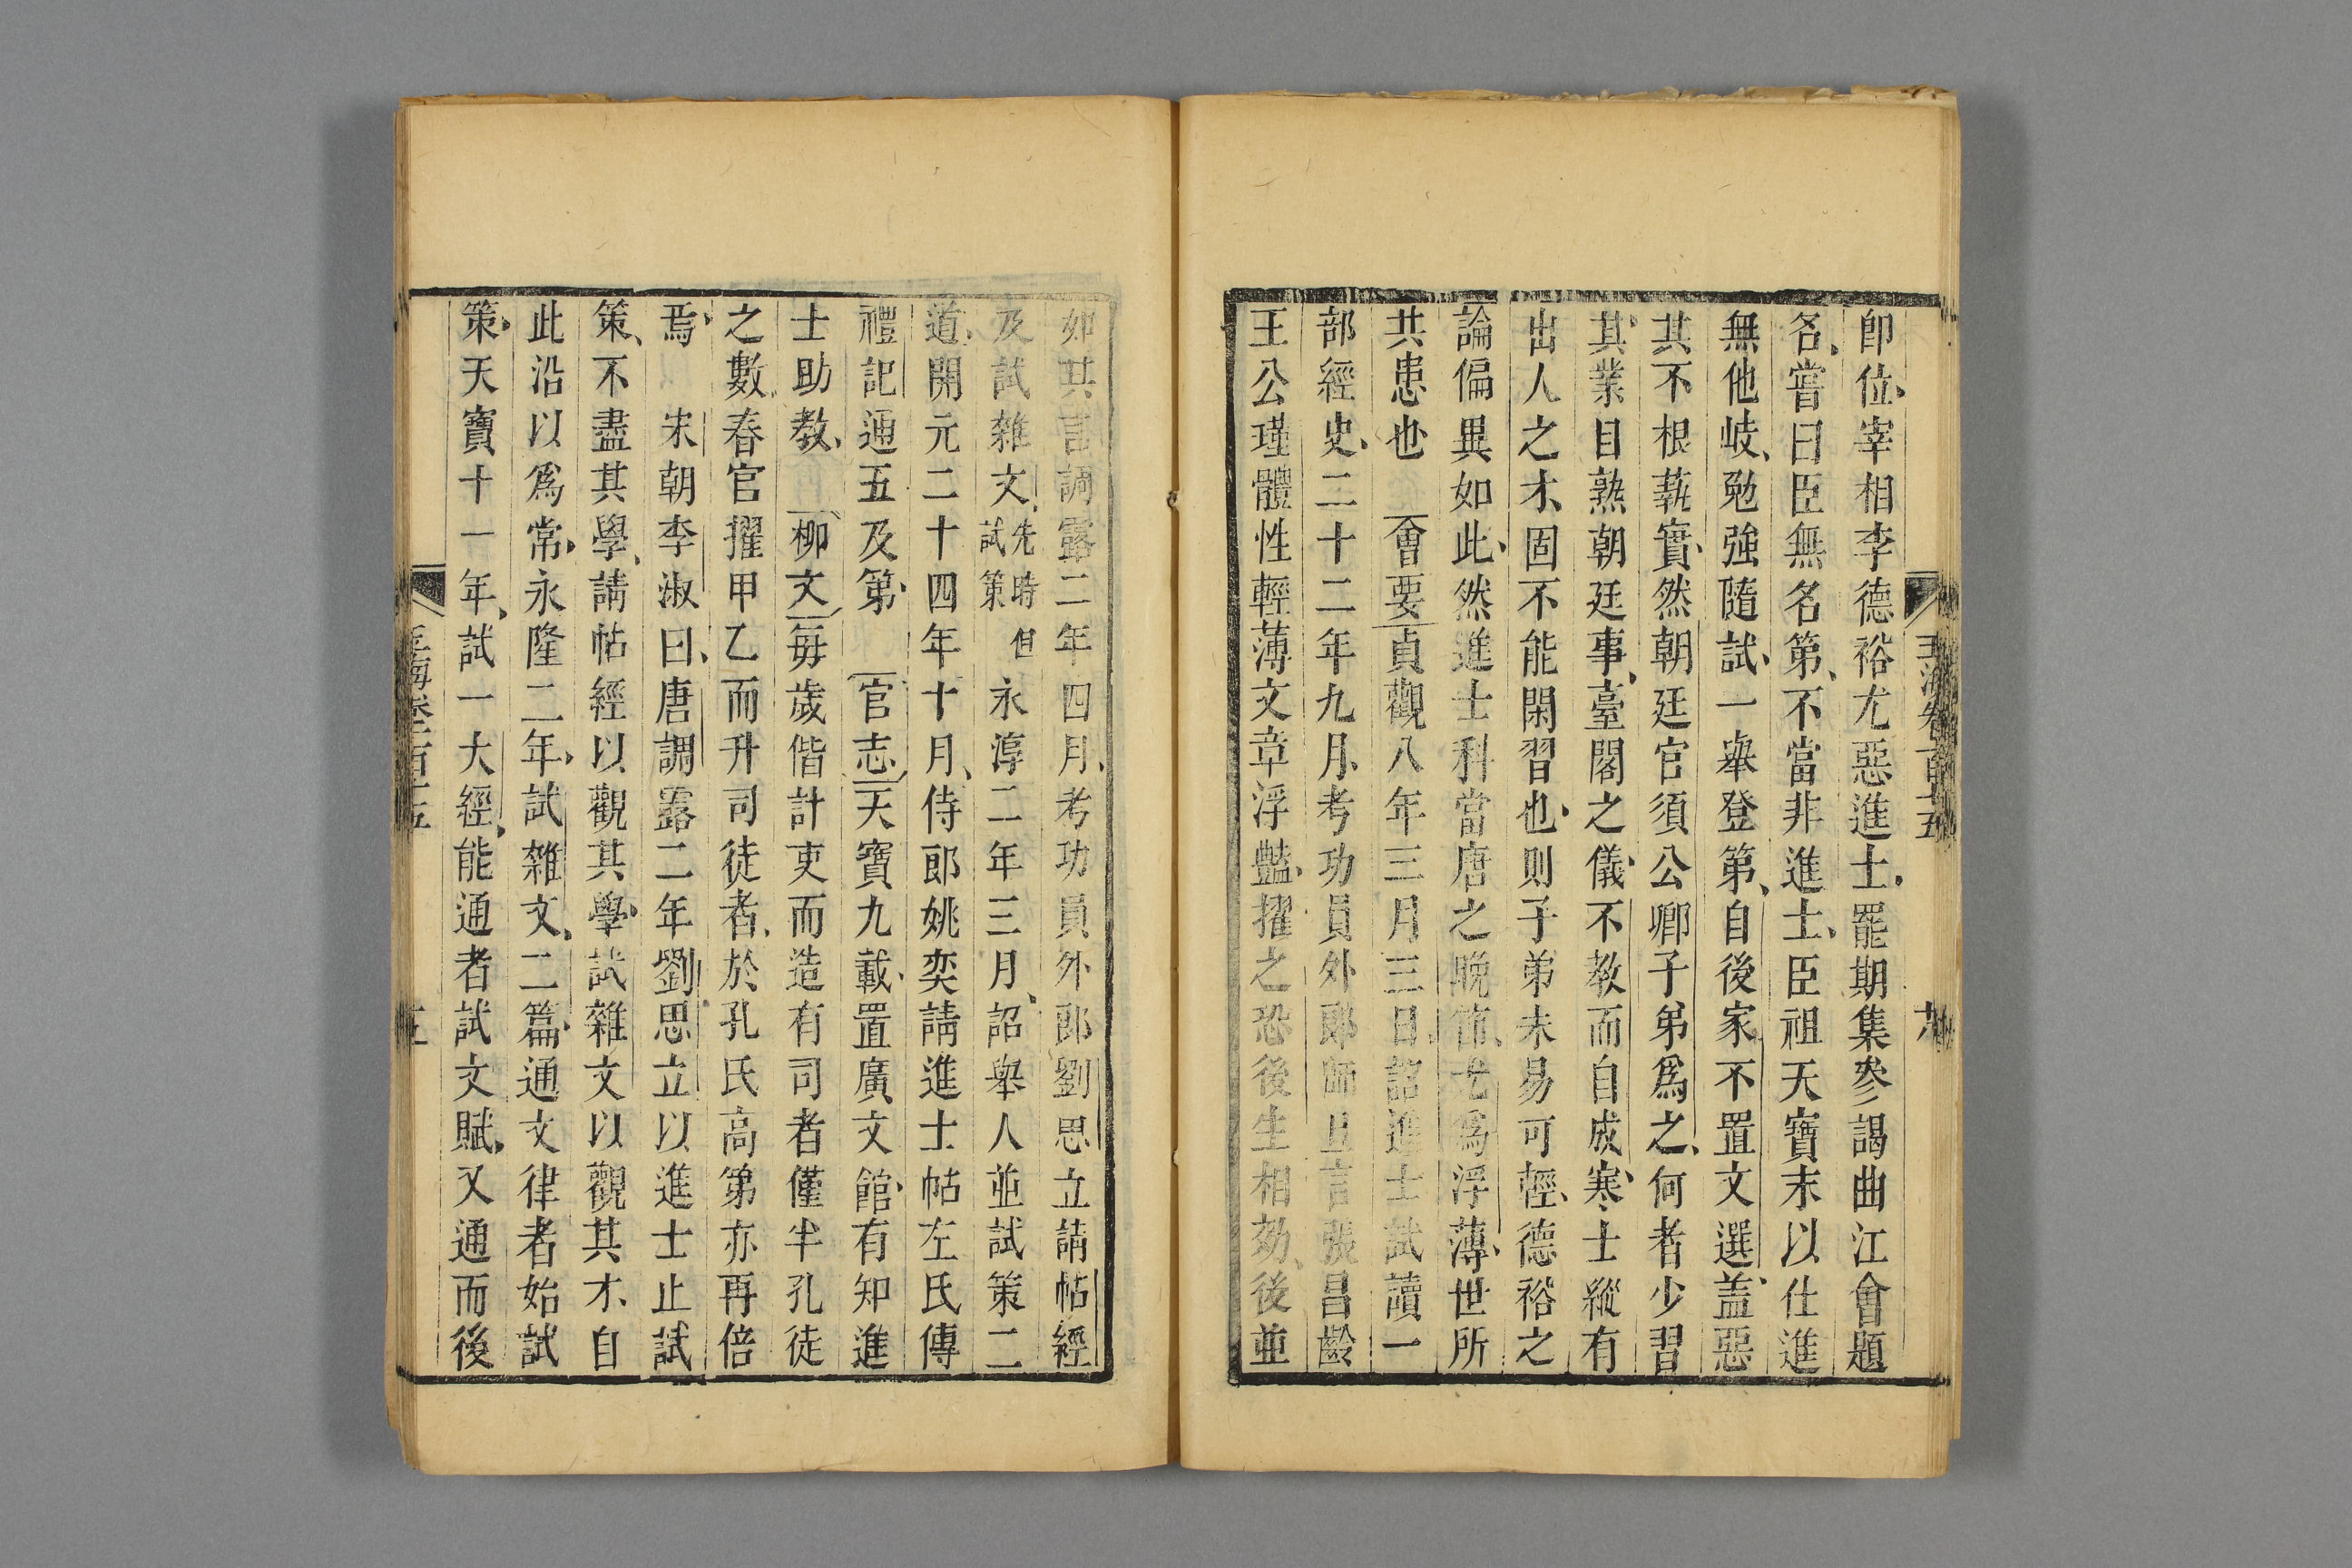 玉海卷百十五
卽位宰相李德裕尤惡進士罷期集叅謁曲江會題
名嘗曰臣無名第不當非進士臣祖天寶末以仕進
無他岐勉強隨試一舉登第自後家不置文選盖惡
其不根蓺實然朝廷官須公卿子弟爲之何者少習
其業目熟朝廷事臺閣之儀不教而自成寒士縱有
出人之才固不能閑習也則子弟未易可輕德裕之
論偏異如此然進士科當唐之晚節尤爲浮薄世所
共患也 會要貞觀八年三月三日詔進士試讀一
部經史二十二年九月考功員外郞師旦言張昌齡
王公瑾體性輕薄文章浮豔擢之恐後生相効後並
如其言調露二年四月考功員外郞劉思立請帖經
及試雜文先時但試策 永淳二年三月詔舉人並試策二
道開元二十四年十月侍郞姚奕請進士帖左氏傳
禮記通五及第 官志天寶九載置廣文館有知進
士助教 柳文每歲偕計吏而造有司者僅半孔徒
之數春官擢甲乙而升司徒者於孔氏高第亦再倍
焉 宋朝李淑曰唐調露二年劉思立以進士止試
策不盡其學請帖經以觀其學試雜文以觀其才自
此沿以爲常永隆二年試雜文二篇通文律者始試
策天寶十一年試一大經能通者試文賦又通而後
玉海卷百十五